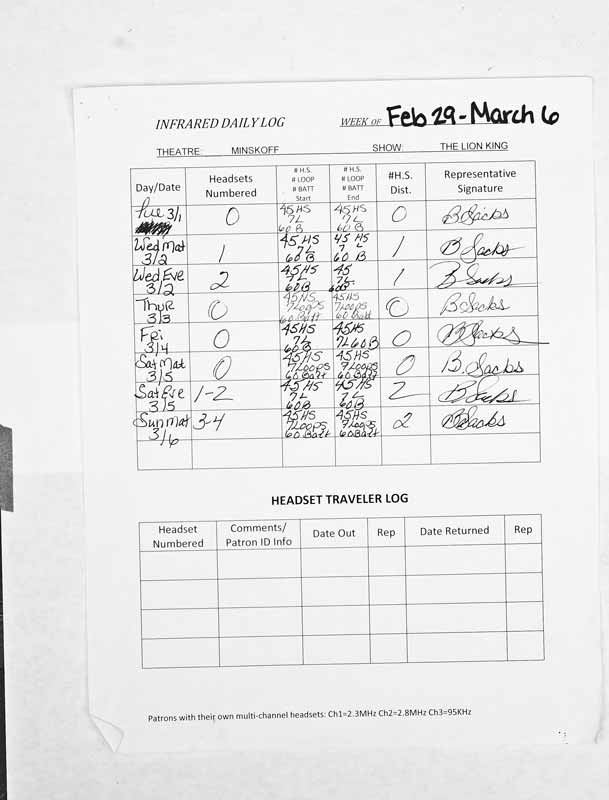 INFRARED DAILY LOG WEEK OF Feb 29-March 6
THEATRE: MINSKOFF SHOW: THE LION KING
Day/Date Headsets Numbered # H.S. # LOOP # BATT Start # H.S. # LOOP # BATT End #H.S. Dist. Representative Signature
Tue 3/1 0 45 HS 7L 60 B 45 HS 7L 60 B 0 B Sacks
Wed Mat 3/2 1 45 HS 7L 60 B 45 HS 7 L 60 B 1 B Sacks
Wed Eve 3/2 2 45 HS 7L 60B 45 7L 60B 1 B Sacks
Thur 3/3 0 45 HS 7 Loops 60 Batt 45HS 7 Loops 60 Batt 0 B Sacks
Fri 3/4 0 45HS 7L 60 B 45HS 7L 60 B 0 B Sacks
Sat Mat 3/5 0 45HS 7 Loops 60 Batt 45HS 7 Loops 60 Batt 0 B. Sacks
Sat Eve 3/5 1-2 45 HS 7L 60B 45 HS 7L 60B 2 B Sacks
Sun Mat 3/6 3-4 45HS 7 Loops 60 Batt 45HS 7 Loops 60Batt 2 B Sacks
HEADSET TRAVELER LOG
Headset Numbered Comments/ Patron ID Info Date Out Rep Date Returned Rep
Patrons with their own multi-channel headsets: Ch1=2.3MHz Ch2=2.8MHz Ch3=95KHz